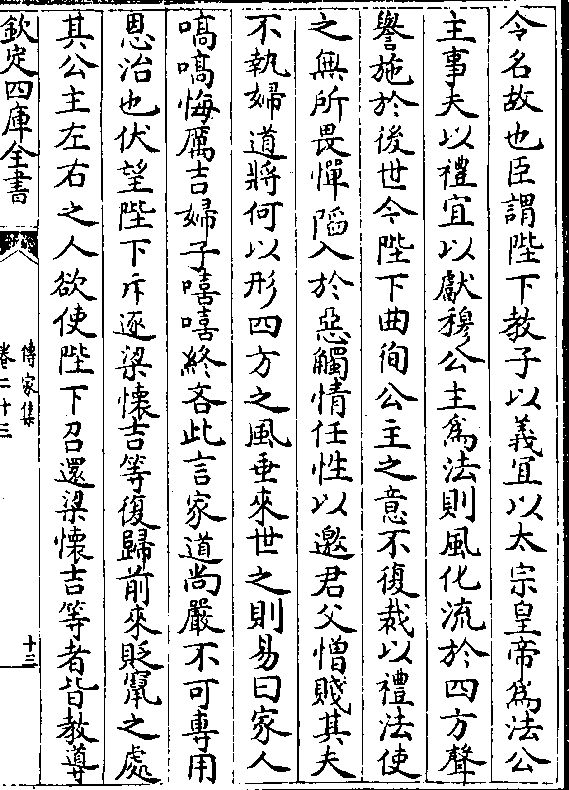 令名故也臣謂陛下教子以義宜以太宗皇帝為法公
主事夫以禮宜以獻穆公主為法則風化流於四方聲
譽施於後世今陛下曲徇公主之意不復裁以禮法使
之無所畏憚陷入於惡觸情任性以邀君父憎賤其夫
不執婦道將何以形四方之風垂來世之則易曰家人
嗃嗃悔厲吉婦子嘻嘻終吝此言家道尚嚴不可專用
恩治也伏望陛下斥逐梁懷吉等復歸前來貶竄之處
其公主左右之人欲使陛下召還梁懷吉等者皆教導
欽定四庫全書
傳家集
卷二十三
十三